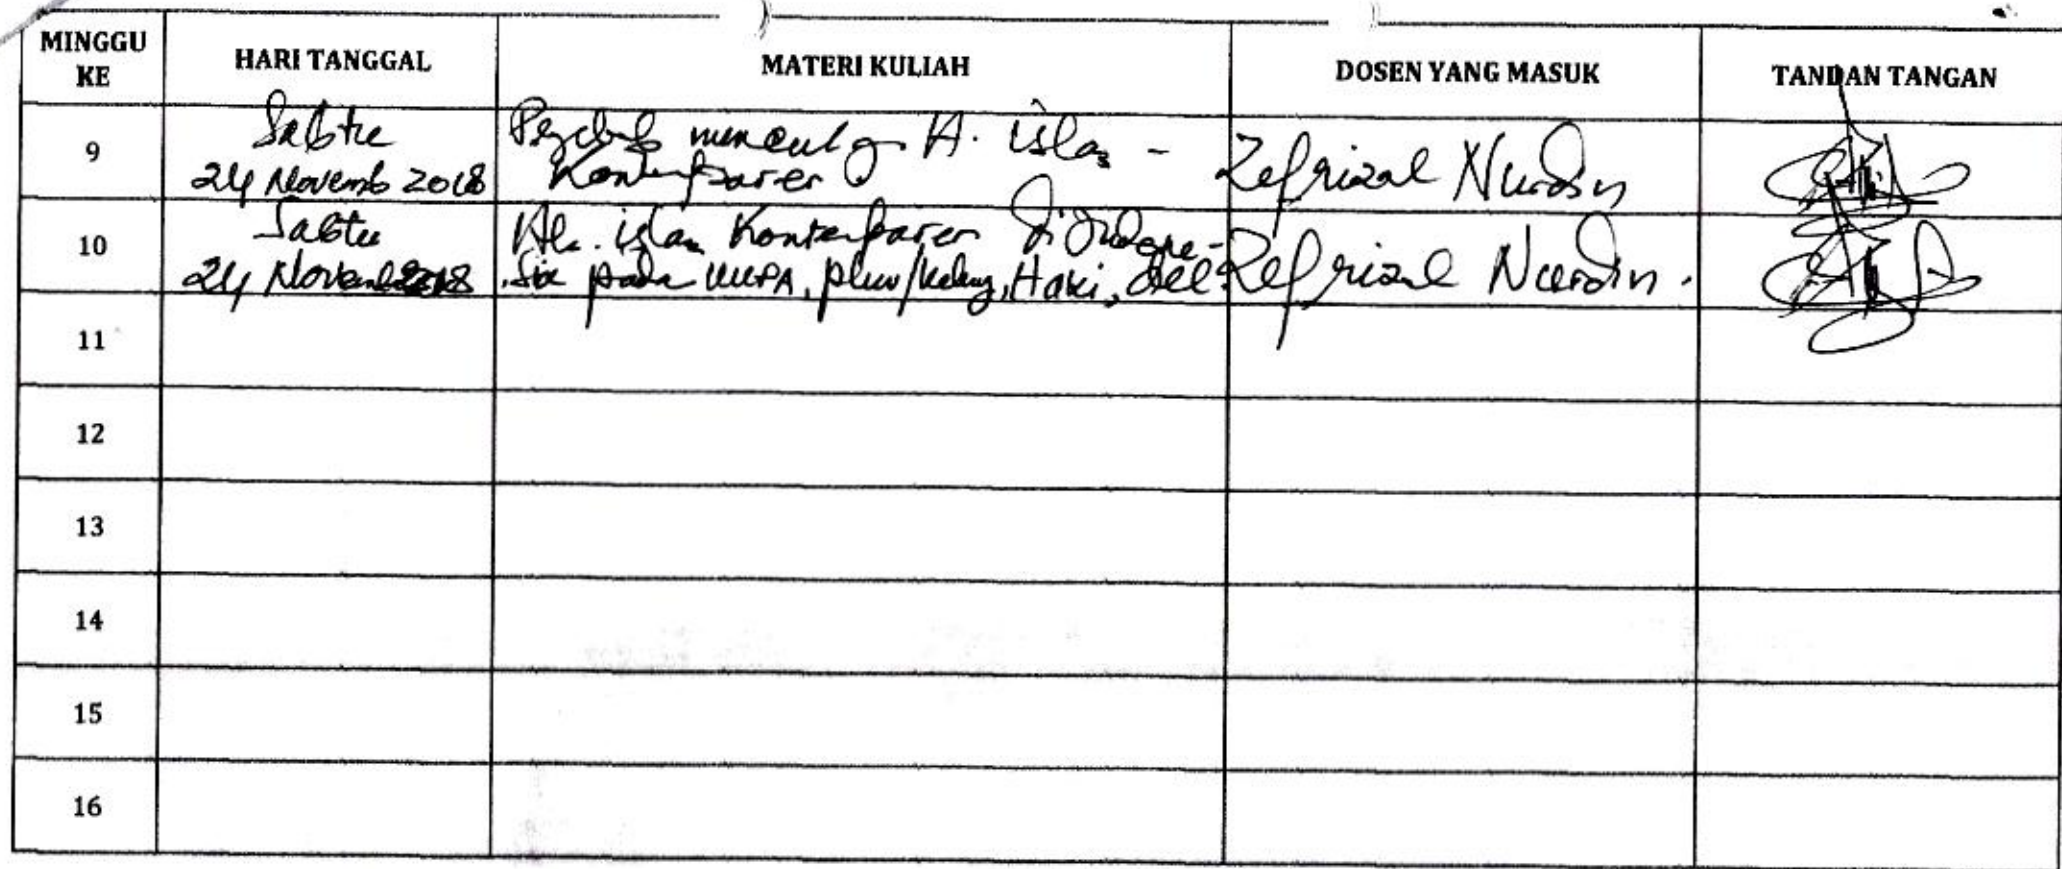 MINGGU KE
HARI TANGGAL
MATERI KULIAH
DOSEN YANG MASUK
TANDAN TANGAN
9
Sabtu
24 Novemb 2018
muncul H. islam -
Kontemporer
Zefrizal Nurdin
10
Sabtu
24 November 2018
Hk. islam Kontemporer di Indone-
sia pada UUPA, Haki, dll.
Zefrizal Nurdin.
11
12
13
14
15
16